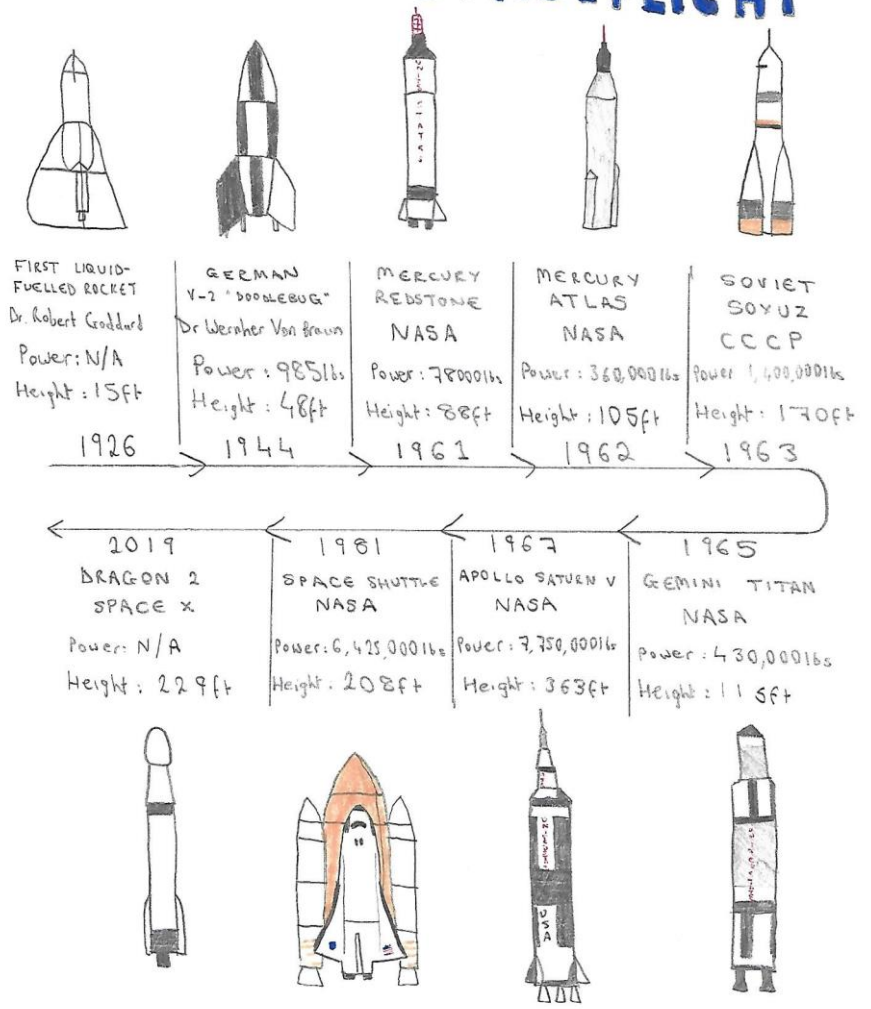 FLIGHT
UNITED STATES
FIRST LIQUID-
FUELLED ROCKET
Dr. Robert Goddard
Power: N/A
Height: 15ft
1926
GERMAN
V-2 "DOODLEBUG"
Dr Wernher Von Braun
Power: 985lbs
Height: 48ft
1944
MERCURY
REDSTONE
NASA
Power: 78000lbs
Height: 88ft
1961
MERCURY
ATLAS
NASA
Power: 360,000lbs
Height: 105ft
1962
SOVIET
SOYUZ
CCCP
Power 1,400,000lbs
Height: 170ft
1963
2019
DRAGON 2
SPACE X
Power: N/A
Height: 229ft
1981
SPACE SHUTTLE
NASA
Power: 6,425,000lbs
Height: 208ft
1967
APOLLO SATURN V
NASA
Power: 7,750,000lbs
Height: 363ft
1965
GEMINI TITAN
NASA
Power: 430,000lbs
Height: 115ft
USA